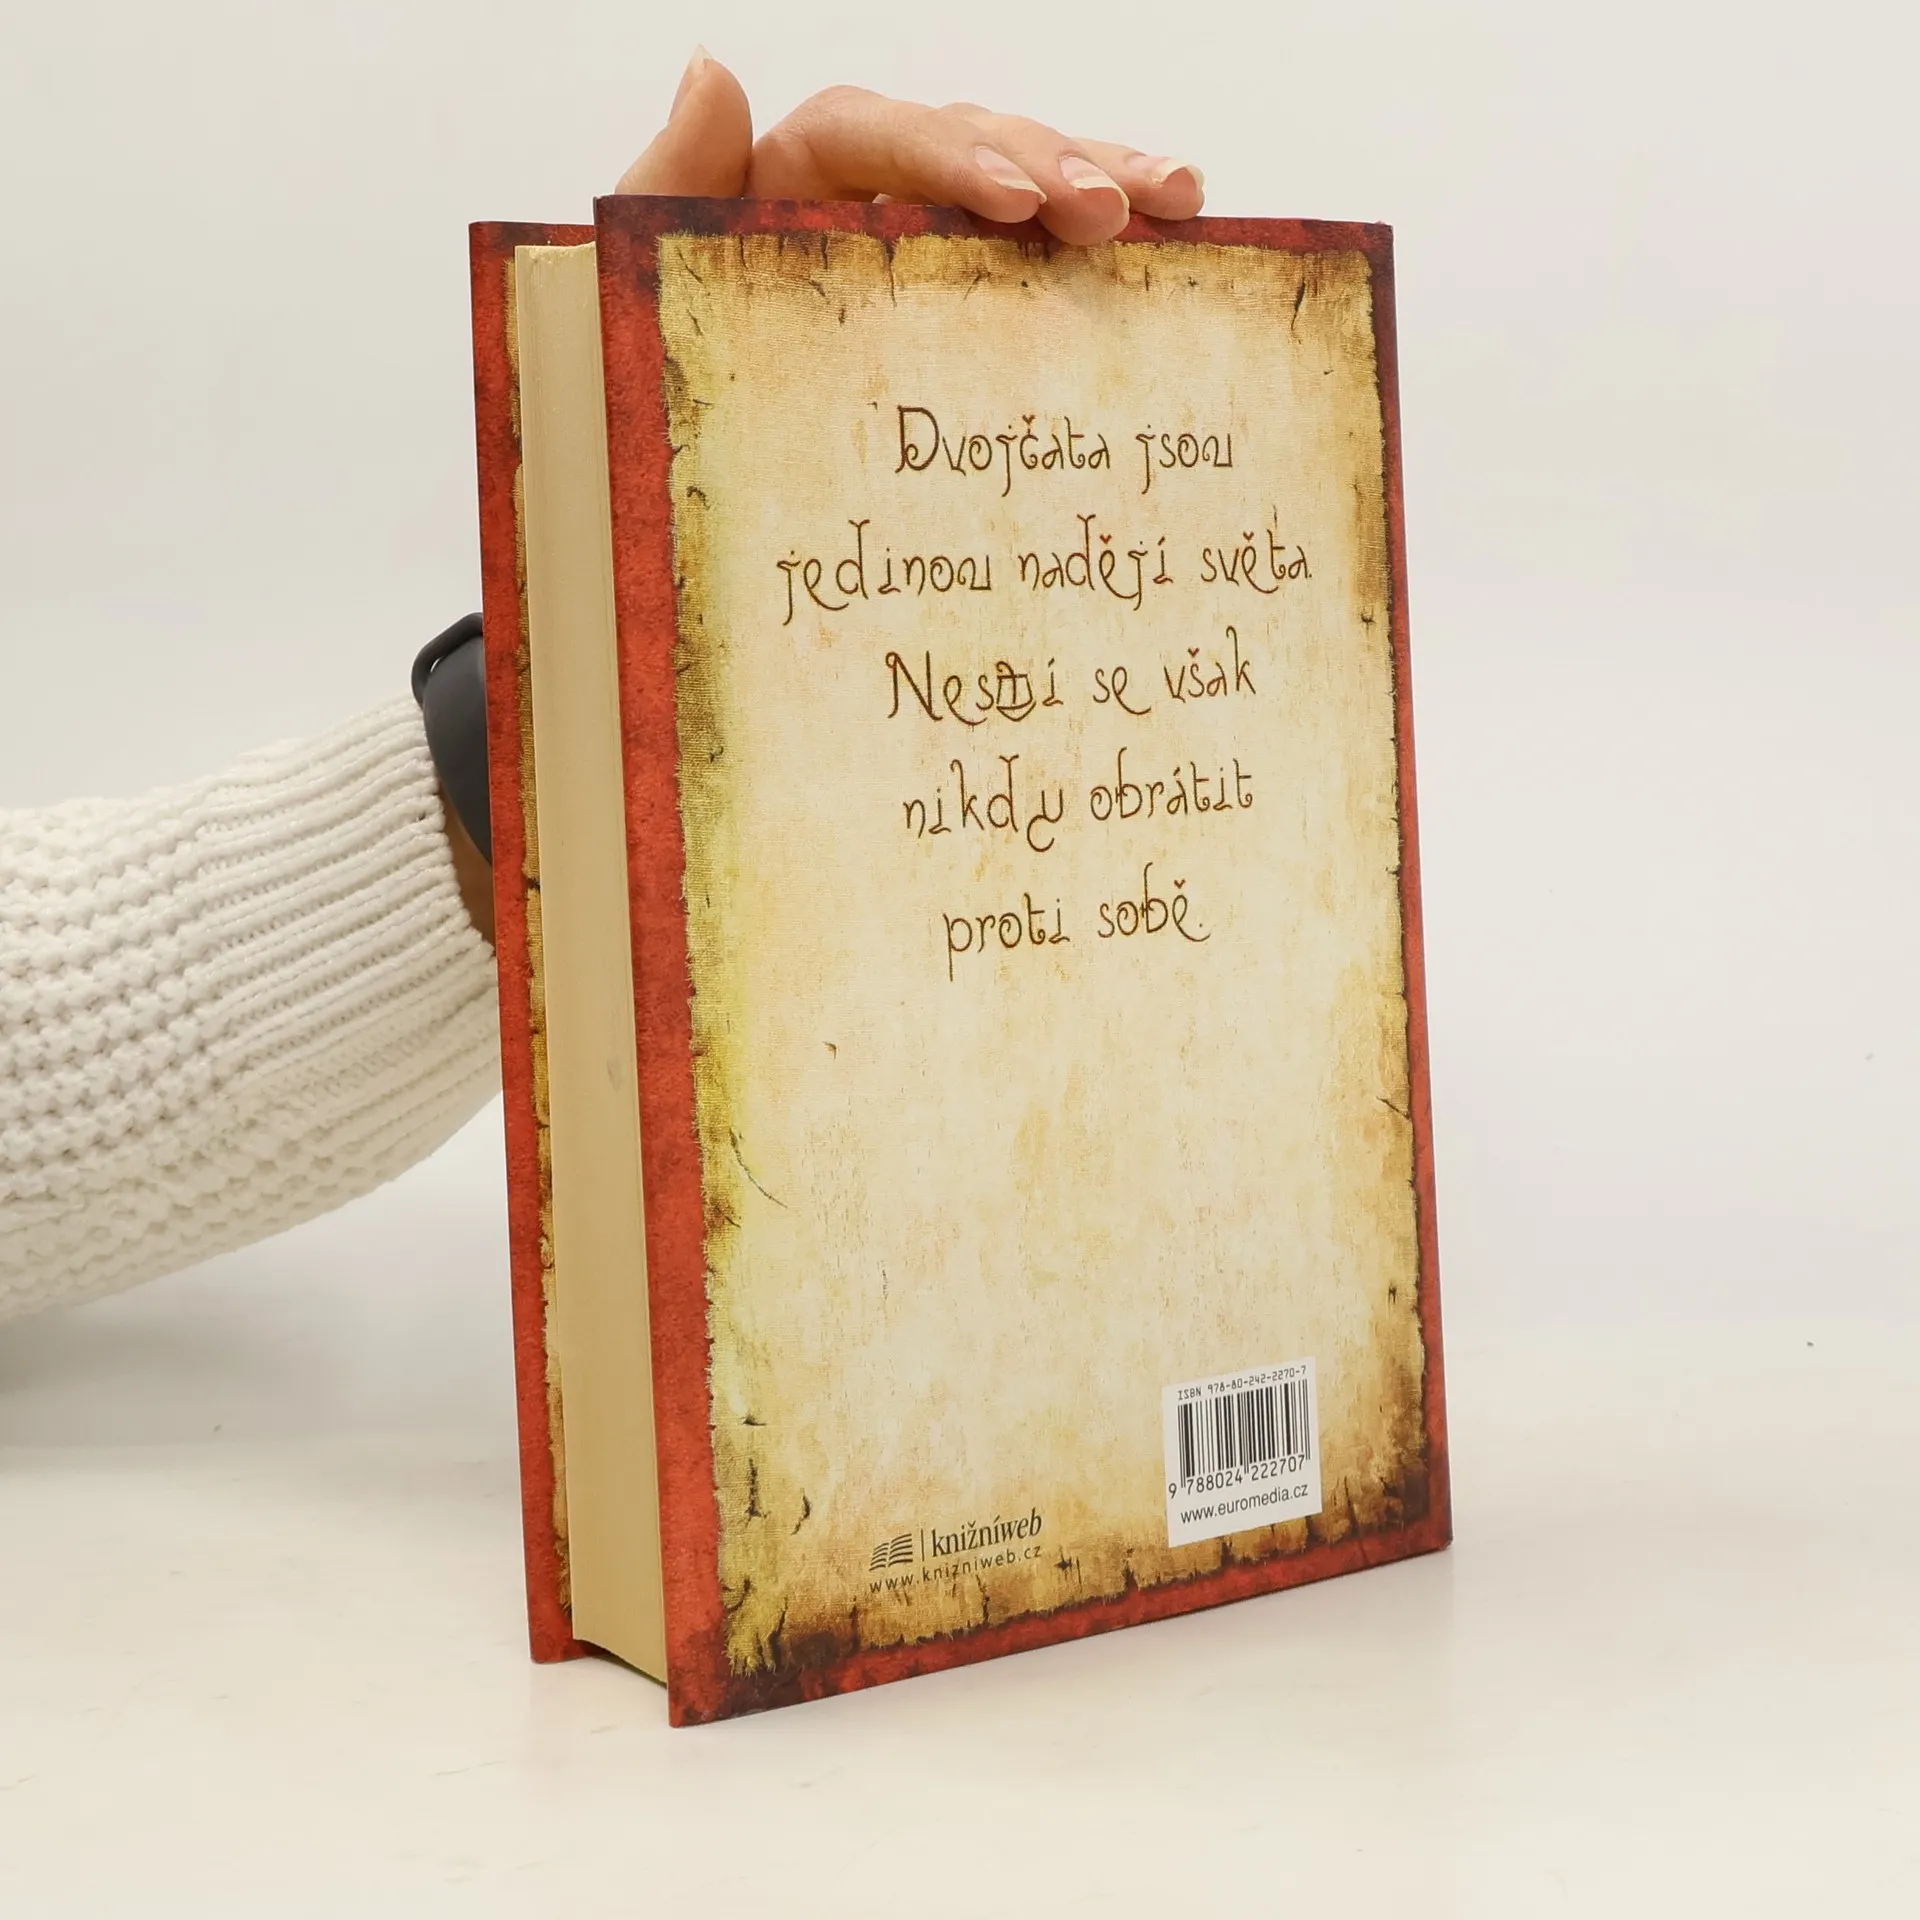 Dvojčata jsou
jedinou nadějí světa.
Nesmí se však
nikdy obrátit
proti sobě.
ISBN 978-80-242-2270-7
9 788024 222707
www.euromedia.cz
knižníweb
www.knizniweb.cz